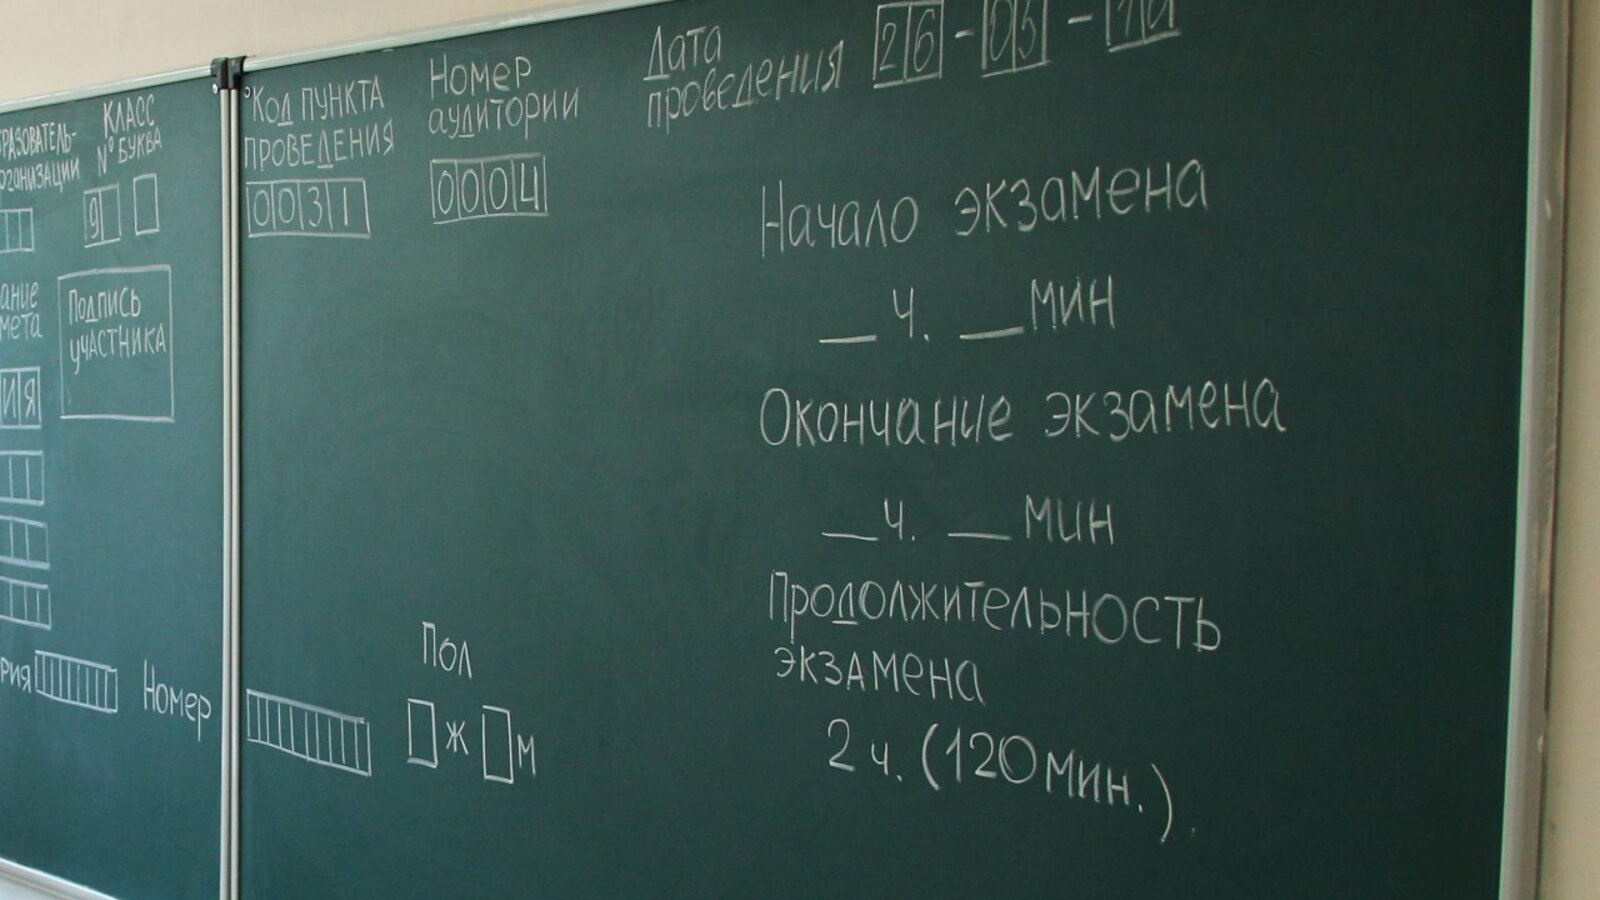 КЛАСС
№ БУКВА
9
Подпись
участника
ИЯ
Номер
Код пункта
проведения
0031
Номер
аудитории
0004
Дата
проведения 26-05-
Начало экзамена
__ ч. __ мин
Окончание экзамена
__ ч. __ мин
Продолжительность
экзамена
2 ч. (120 мин.)
Пол
Ж М